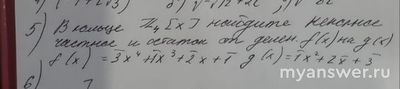 5) В кольце Z₄[x] найдите неполное
частное и остаток от делен. f(x) на g(x)
f(x) = 3̄x⁴ + 1̄x³ + 2̄x + 1̄ g(x) = 1̄x² + 2̄x + 3̄
6)
myanswer.ru